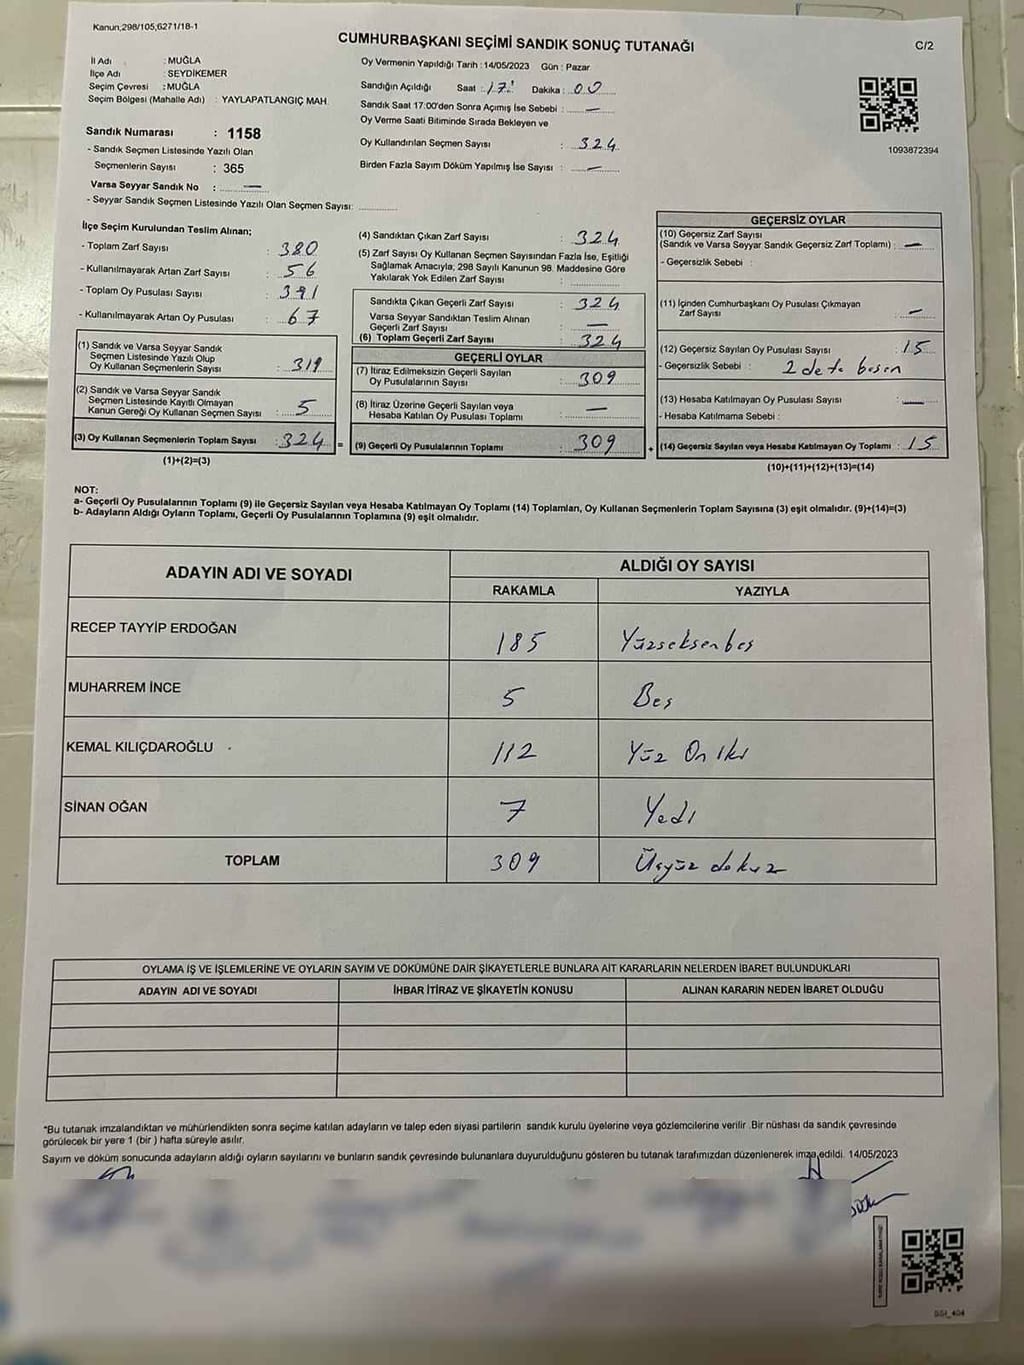 Kanun,298/105,6271/18-1
CUMHURBAŞKANI SEÇİMİ SANDIK SONUÇ TUTANAĞI
C/2
İl Adı : MUĞLA
İlçe Adı : SEYDİKEMER
Seçim Çevresi : MUĞLA
Seçim Bölgesi (Mahalle Adı) : YAYLAPATLANGIÇ MAH.
Sandık Numarası : 1158
- Sandık Seçmen Listesinde Yazılı Olan
Seçmenlerin Sayısı : 365
Varsa Seyyar Sandık No : —
- Seyyar Sandık Seçmen Listesinde Yazılı Olan Seçmen Sayısı:
Oy Vermenin Yapıldığı Tarih : 14/05/2023 Gün : Pazar
Sandığın Açıldığı Saat : 17 Dakika : 00
Sandık Saat 17:00'den Sonra Açımış İse Sebebi : —
Oy Verme Saati Bitiminde Sırada Bekleyen ve
Oy Kullandırılan Seçmen Sayısı : 324
Birden Fazla Sayım Döküm Yapılmış İse Sayısı : —
1093872394
İlçe Seçim Kurulundan Teslim Alınan;
- Toplam Zarf Sayısı : 380
- Kullanılmayarak Artan Zarf Sayısı : 56
- Toplam Oy Pusulası Sayısı : 391
- Kullanılmayarak Artan Oy Pusulası : 67
(1) Sandık ve Varsa Seyyar Sandık
Seçmen Listesinde Yazılı Olup
Oy Kullanan Seçmenlerin Sayısı : 319
(2) Sandık ve Varsa Seyyar Sandık
Seçmen Listesinde Kayıtlı Olmayan
Kanun Gereği Oy Kullanan Seçmen Sayısı : 5
(3) Oy Kullanan Seçmenlerin Toplam Sayısı : 324 =
(1)+(2)=(3)
(4) Sandıktan Çıkan Zarf Sayısı : 324
(5) Zarf Sayısı Oy Kullanan Seçmen Sayısından Fazla İse, Eşitliği
Sağlamak Amacıyla, 298 Sayılı Kanunun 98. Maddesine Göre
Yakılarak Yok Edilen Zarf Sayısı :
Sandıkta Çıkan Geçerli Zarf Sayısı : 324
Varsa Seyyar Sandıktan Teslim Alınan
Geçerli Zarf Sayısı : —
(6) Toplam Geçerli Zarf Sayısı : 324
GEÇERLİ OYLAR
(7) İtiraz Edilmeksizin Geçerli Sayılan
Oy Pusulalarının Sayısı : 309
(8) İtiraz Üzerine Geçerli Sayılan veya
Hesaba Katılan Oy Pusulası Toplamı : —
(9) Geçerli Oy Pusulalarının Toplamı : 309 +
GEÇERSİZ OYLAR
(10) Geçersiz Zarf Sayısı
(Sandık ve Varsa Seyyar Sandık Geçersiz Zarf Toplamı) : —
- Geçersizlik Sebebi :
(11) İçinden Cumhurbaşkanı Oy Pusulası Çıkmayan
Zarf Sayısı : —
(12) Geçersiz Sayılan Oy Pusulası Sayısı : 15
- Geçersizlik Sebebi : 2 defa basan
(13) Hesaba Katılmayan Oy Pusulası Sayısı : —
- Hesaba Katılmama Sebebi :
(14) Geçersiz Sayılan veya Hesaba Katılmayan Oy Toplamı : 15
(10)+(11)+(12)+(13)=(14)
NOT:
a- Geçerli Oy Pusulalarının Toplamı (9) ile Geçersiz Sayılan veya Hesaba Katılmayan Oy Toplamı (14) Toplamları, Oy Kullanan Seçmenlerin Toplam Sayısına (3) eşit olmalıdır. (9)+(14)=(3)
b- Adayların Aldığı Oyların Toplamı, Geçerli Oy Pusulalarının Toplamına (9) eşit olmalıdır.
ADAYIN ADI VE SOYADI
ALDIĞI OY SAYISI
RAKAMLA YAZIYLA
RECEP TAYYİP ERDOĞAN 185 Yüzseksenbeş
MUHARREM İNCE 5 Beş
KEMAL KILIÇDAROĞLU 112 Yüz On İki
SİNAN OĞAN 7 Yedi
TOPLAM 309 Üçyüz dokuz
OYLAMA İŞ VE İŞLEMLERİNE VE OYLARIN SAYIM VE DÖKÜMÜNE DAİR ŞİKAYETLERLE BUNLARA AİT KARARLARIN NELERDEN İBARET BULUNDUKLARI
ADAYIN ADI VE SOYADI İHBAR İTİRAZ VE ŞİKAYETİN KONUSU ALINAN KARARIN NEDEN İBARET OLDUĞU
*Bu tutanak imzalandıktan ve mühürlendikten sonra seçime katılan adayların ve talep eden siyasi partilerin sandık kurulu üyelerine veya gözlemcilerine verilir. Bir nüshası da sandık çevresinde
görülecek bir yere 1 (bir ) hafta süreyle asılır.
Sayım ve döküm sonucunda adayların aldığı oyların sayılarını ve bunların sandık çevresinde bulunanlara duyurulduğunu gösteren bu tutanak tarafımızdan düzenlenerek imza edildi. 14/05/2023